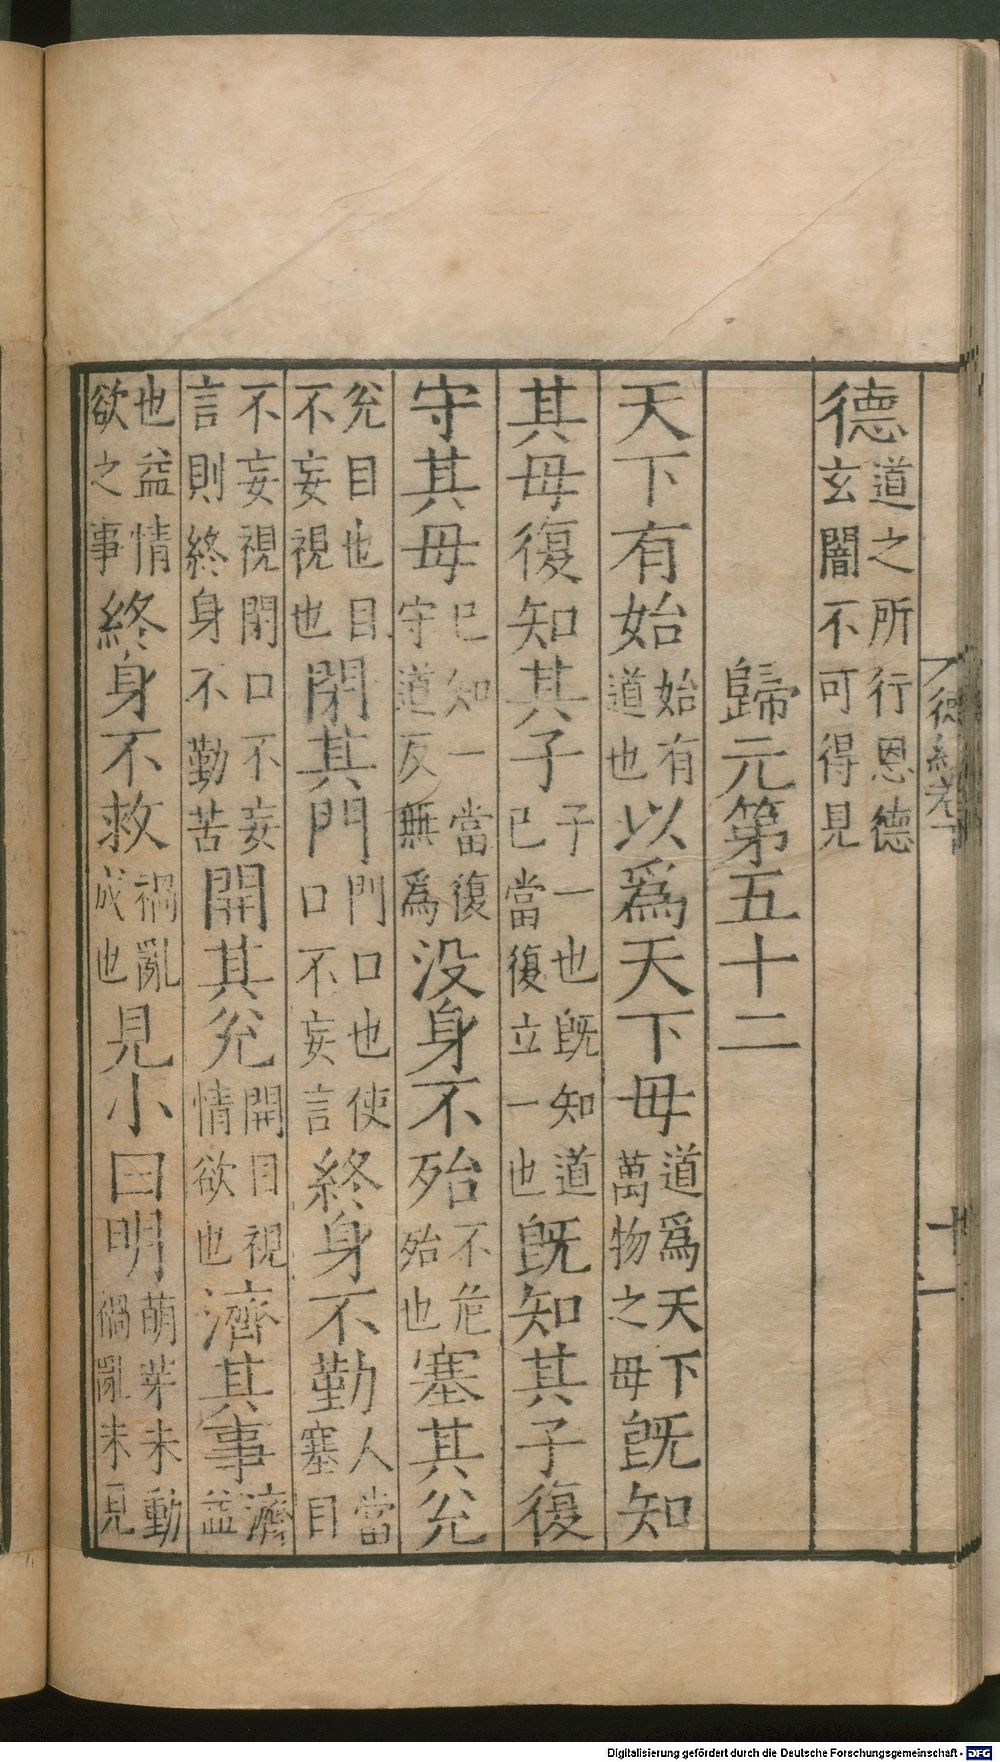 德道之所行恩德玄闇不可得見
歸元第五十二
天下有始始有道也以爲天下母道爲天下萬物之母旣知
其母復知其子子一也旣知道已當復立一也旣知其子復
守其母已知一當復守道反無爲没身不殆不危殆也塞其兊
兊目也目不妄視也閉其門門口也使口不妄言終身不勤人當塞目
不妄視閉口不妄言則終身不勤苦開其兊開目視情欲也濟其事濟益
也益情欲之事終身不救禍亂成也見小曰明萌芽未動禍亂未見
十一
Digitalisierung gefördert durch die Deutsche Forschungsgemeinschaft - DFG